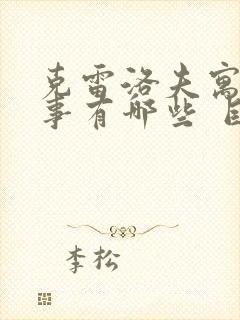 克雷洛夫寓
事有哪些
李松